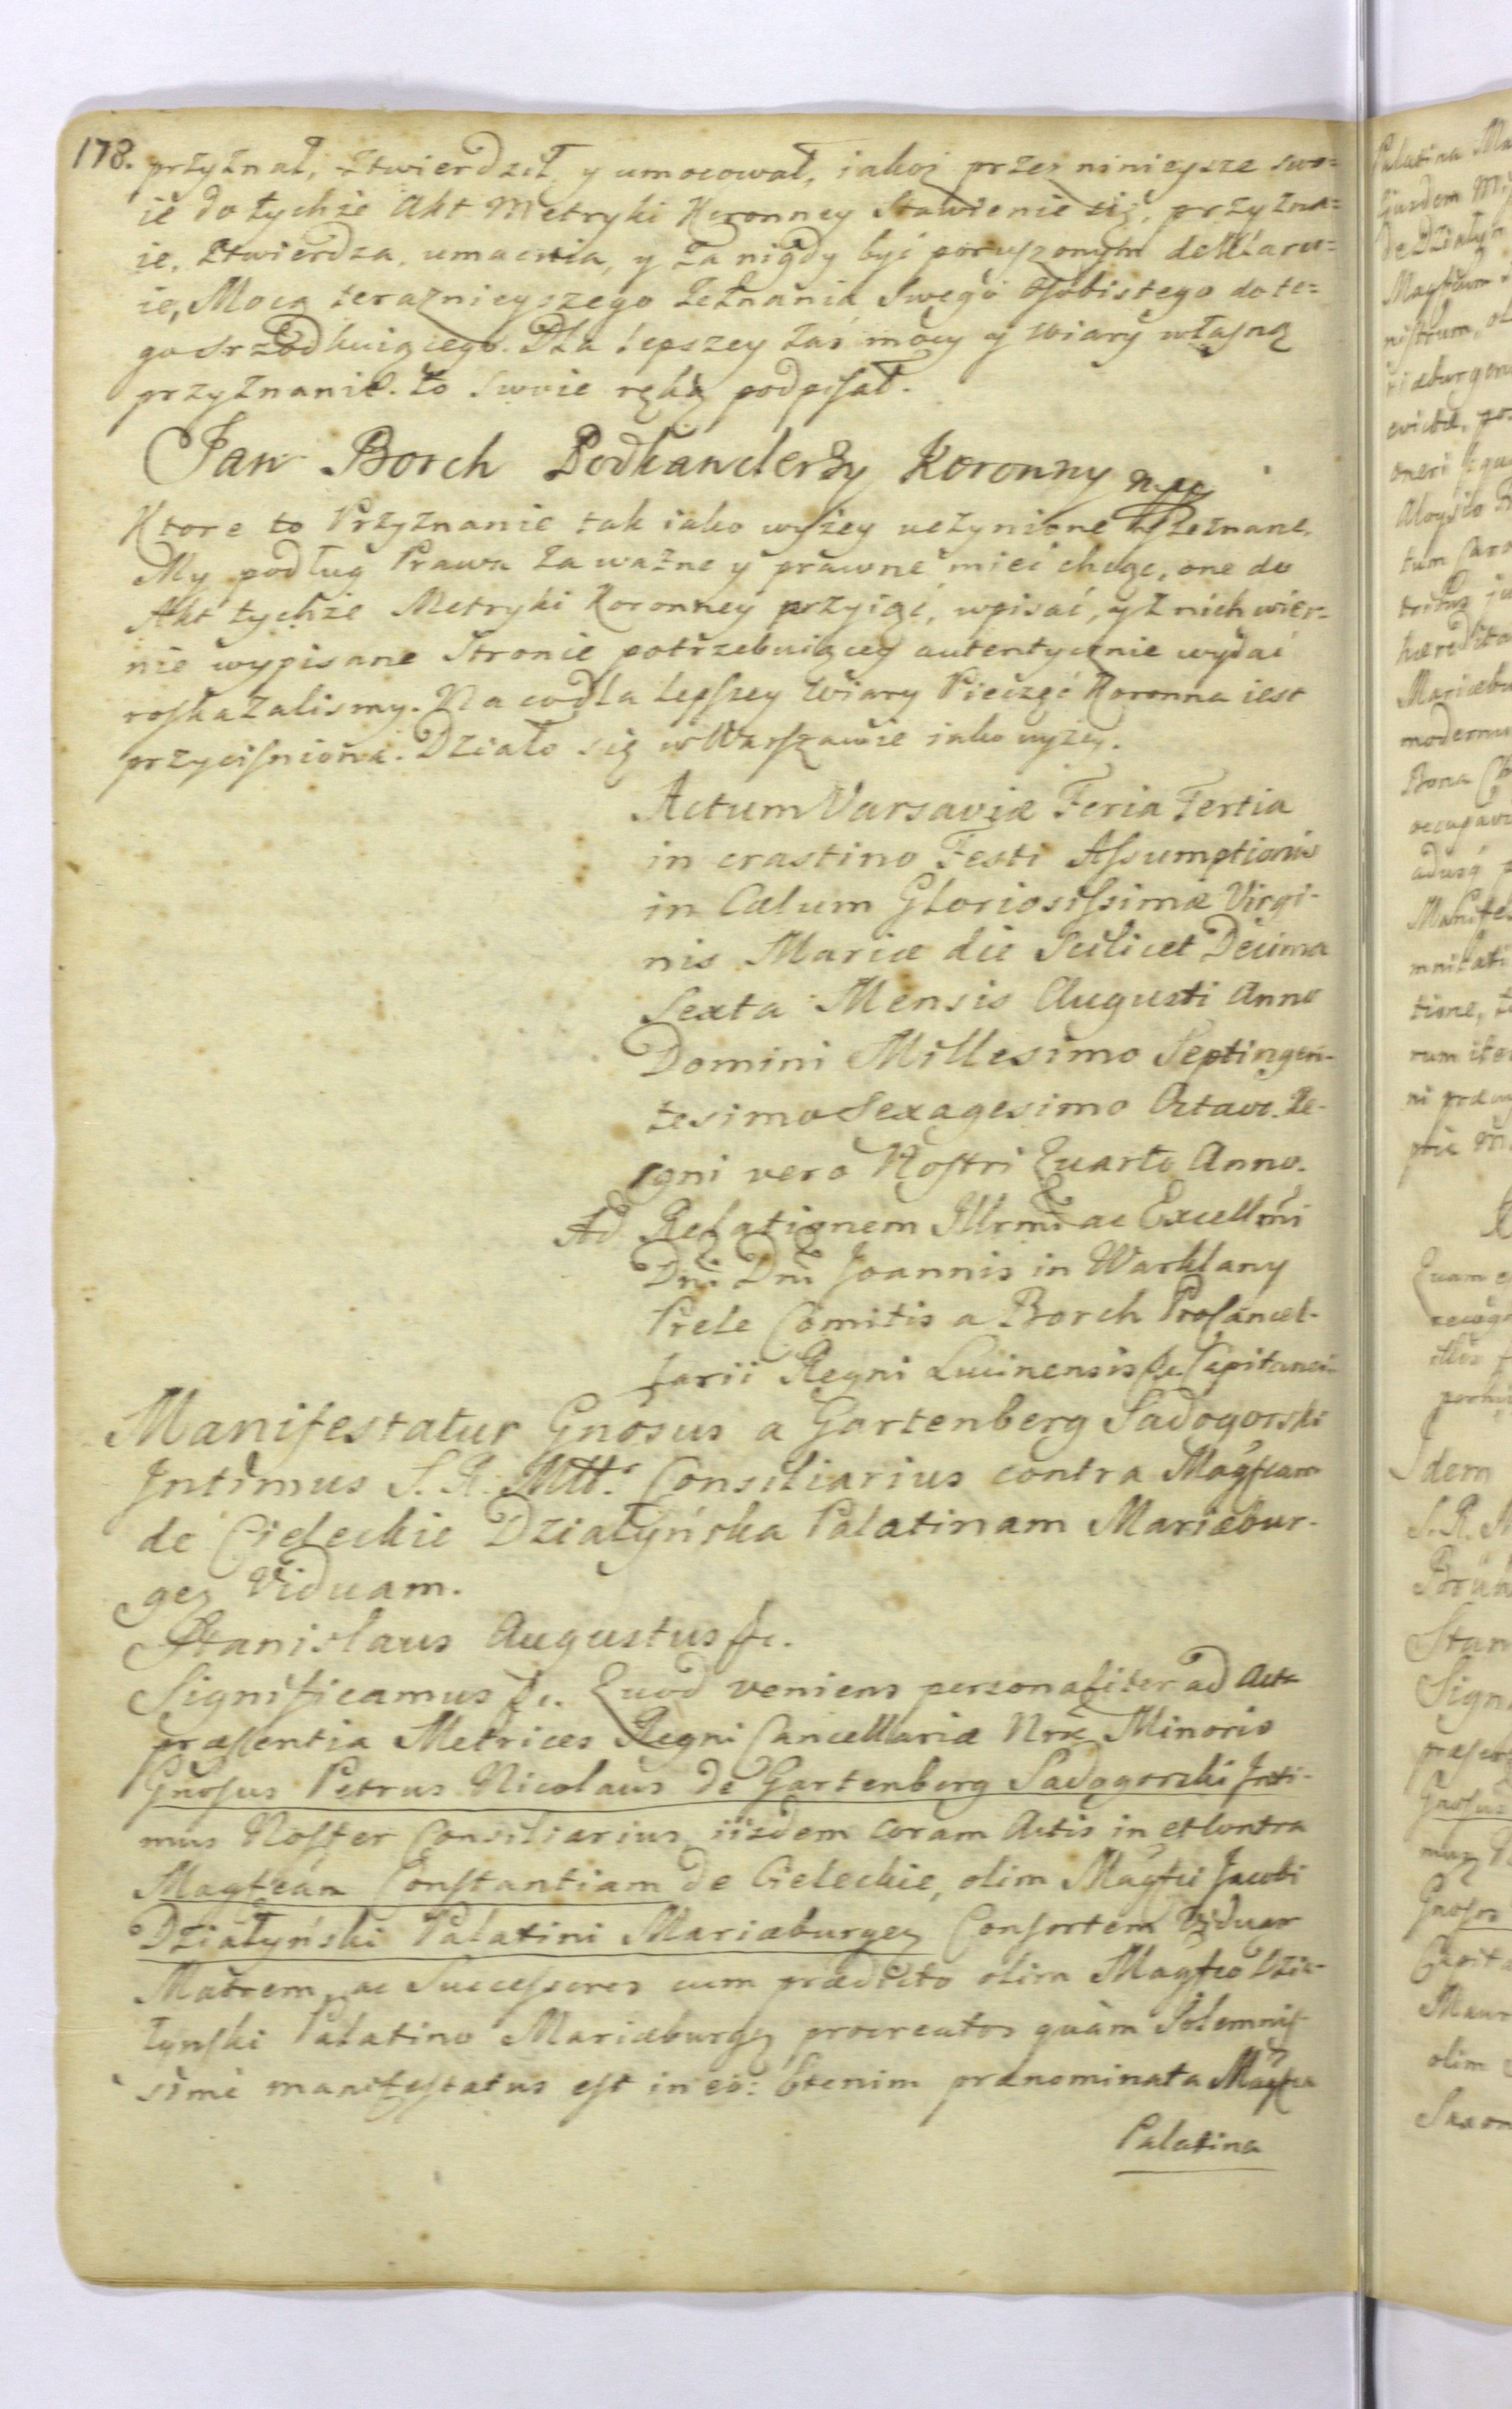 178. przyznał, ztwierdził, y umocował, iakoż przez ninieysze swo=
ie do tychże Akt Metryki Koronney Stawienie się, przyzna=
ie, ztwierdza, umacnia, y za nigdy być poruszonym deklaru=
ie, Mocą teraznieyszego zeznania Swego osobistego do te=
go srzodkuiącego. Dla lepszey zaś mocy y wiary własną
przyznanie to swoie ręką podpisał.
Jan Borch Podkanclerzy Koronny mpp
Ktore to Przyznanie tak iako wyżey uczynione y zeznane,
My podług Prawa za ważne y prawne mieć chcąc, one do
Akt tychże Metryki Koronney przyiąć, wpisać, y z nich wier=
nie wypisane Stronie potrzebuiącey autentycznie wydać
roskazalismy. Na co dla lepszey wiary Pieczęć Koronna iest
przycisniona. Działo się w Warszawie iako wyżey.
Actum Varsaviæ Feria Tertia
in crastino Festi Assumptionis
in Cælum Gloriosissimæ Virgi-
nis Mariæ die Scilicet Decima
Sexta Mensis Augusti Anno
Domini Millesimo Septingen-
tesimo Sexagesimo Octavo. Re-
gni vero Nostri Quarto Anno.
Ad Relationem Illrmi ac Excellmi
Dni Dni Joannis in Warklany
Prele Comitis a Borch Procancel-
larii Regni Lucinensis &c. Capitanei
Manifestatur Gnosus a Gartenberg Sadogorski
Intimus S. R. Mtt. Consiliarius contra Magfcam
de Cieleckie Działyńska Palatinam Mariæbur-
geñ Viduam.
Stanislaus Augustus &c.
Significamus &c. Quod veniens personaliter ad Acta
præsentia Metrices Regni Cancellariæ Nræ Minoris
Gnosus Petrus Nicolaus de Gartenberg Sadogorski Inti-
mus Noster Consiliarius iisdem coram Actis in et contra
Magfcam Constantiam de Cieleckie, olim Magfci Jacobi
Działyński Palatini Mariæburgeñ Consortem Viduam
Matrem, ac Successores cum prædicto olim Magfco Dzia-
łynski Palatino Mariæburgeñ procreatos quàm Solemnis-
simè manifestatus est in eo: Etenim prænominata Magfca
Palatina